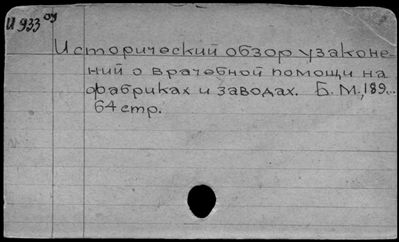 И 933 оу
Исторический обзор узаконе-
ний о врачебной помощи на
фабриках и заводах. Б. М., 189...
64 стр.